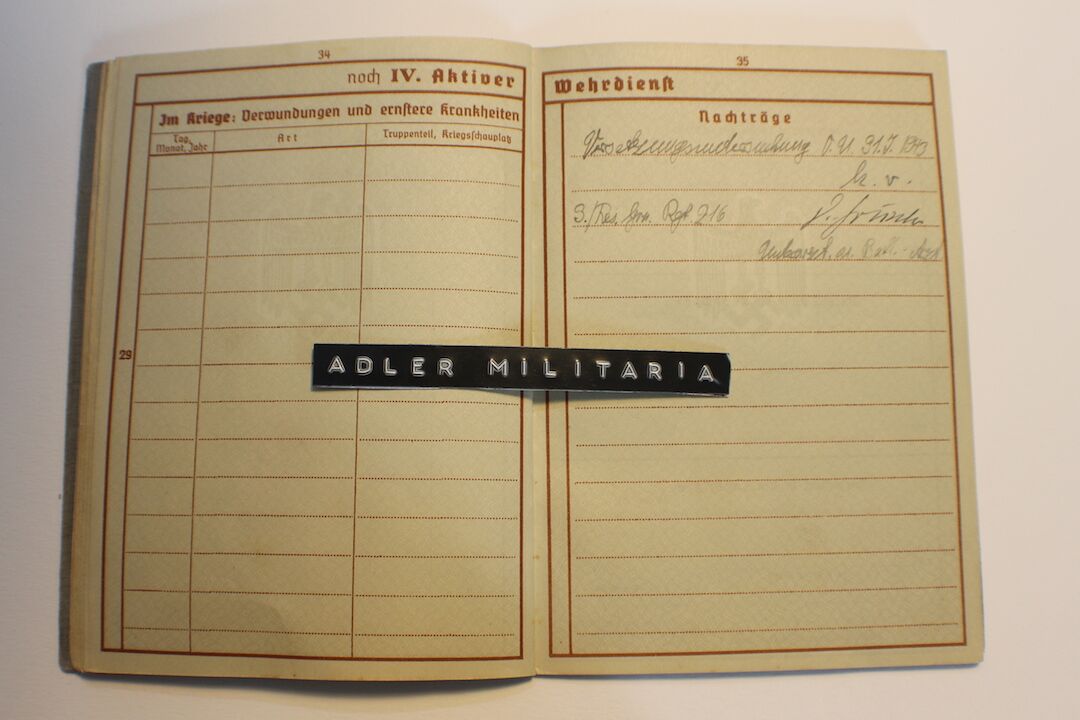 34
noch IV. Aktiver
Im Kriege: Verwundungen und ernstere Krankheiten
Tag, Monat, Jahr
Art
Truppenteil, Kriegsschauplatz
29
35
Wehrdienst
Nachträge
Versetzungsuntersuchung O. U. 31.7. 1943
k. v.
3./Res. Gren. Rgt. 216
ADLER MILITARIA